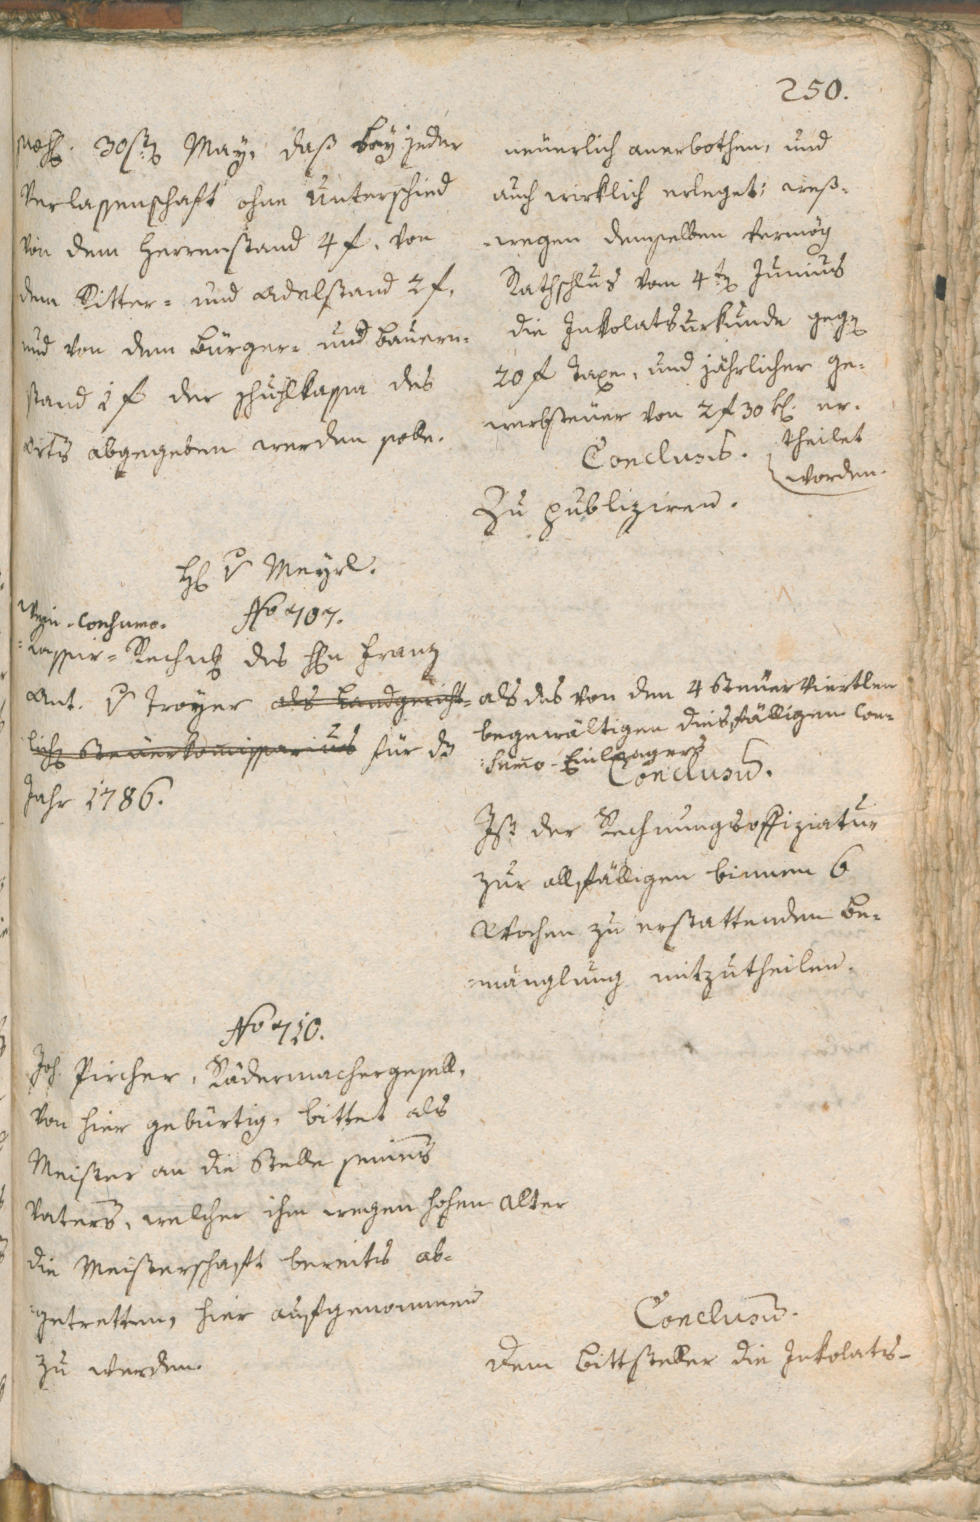 250.
30st May, daß bey jeder
Verlassenschaft ohne Unterschied
von dem Herrenstand 4 f, von
dem Ritter- und Adelstand 2 f,
und von dem Bürger- und Bauern-
stand 1 f der Schulkassa des
Orts abgegeben werden solle.
neuerlich anerbothen, und
auch wirklich erleget; weß-
-wegen demselben vermög
Rathschlus vom 4ten Junius
die Inkolatsurkunde gegen
20 f Taxe, und jährlicher Ge-
werbsteuer von 2 f 30 kr. er-
theilet
worden.
Conclusis.
Zu publiziren.
H v Meyrl.
No 707.
Wein-Consumo-
-Kassier-Rechnung des Hn Franz
Ant. v Troyer als Landgericht-
lichen Steuerkommissarius für das
Jahr 1786.
als des von den 4 Steuerviertlen
begewältigen diesfälligen Con-
sumo-Einlangers
Conclusum.
Ist der Rechnungsoffiziatur
zur allfälligen binnen 6
Wochen zu erstattenden Be-
-mänglung mitzutheilen.
No 710.
Joh. Pircher, Rädermachergesell,
von hier gebürtig, bittet als
Meister an die Stelle seines
Vaters, welcher ihm wegen hohen Alter
die Meisterschaft bereits ab-
-getretten, hier aufgenommen
zu werden.
Conclusum.
Dem Bittsteller die Inkolats-